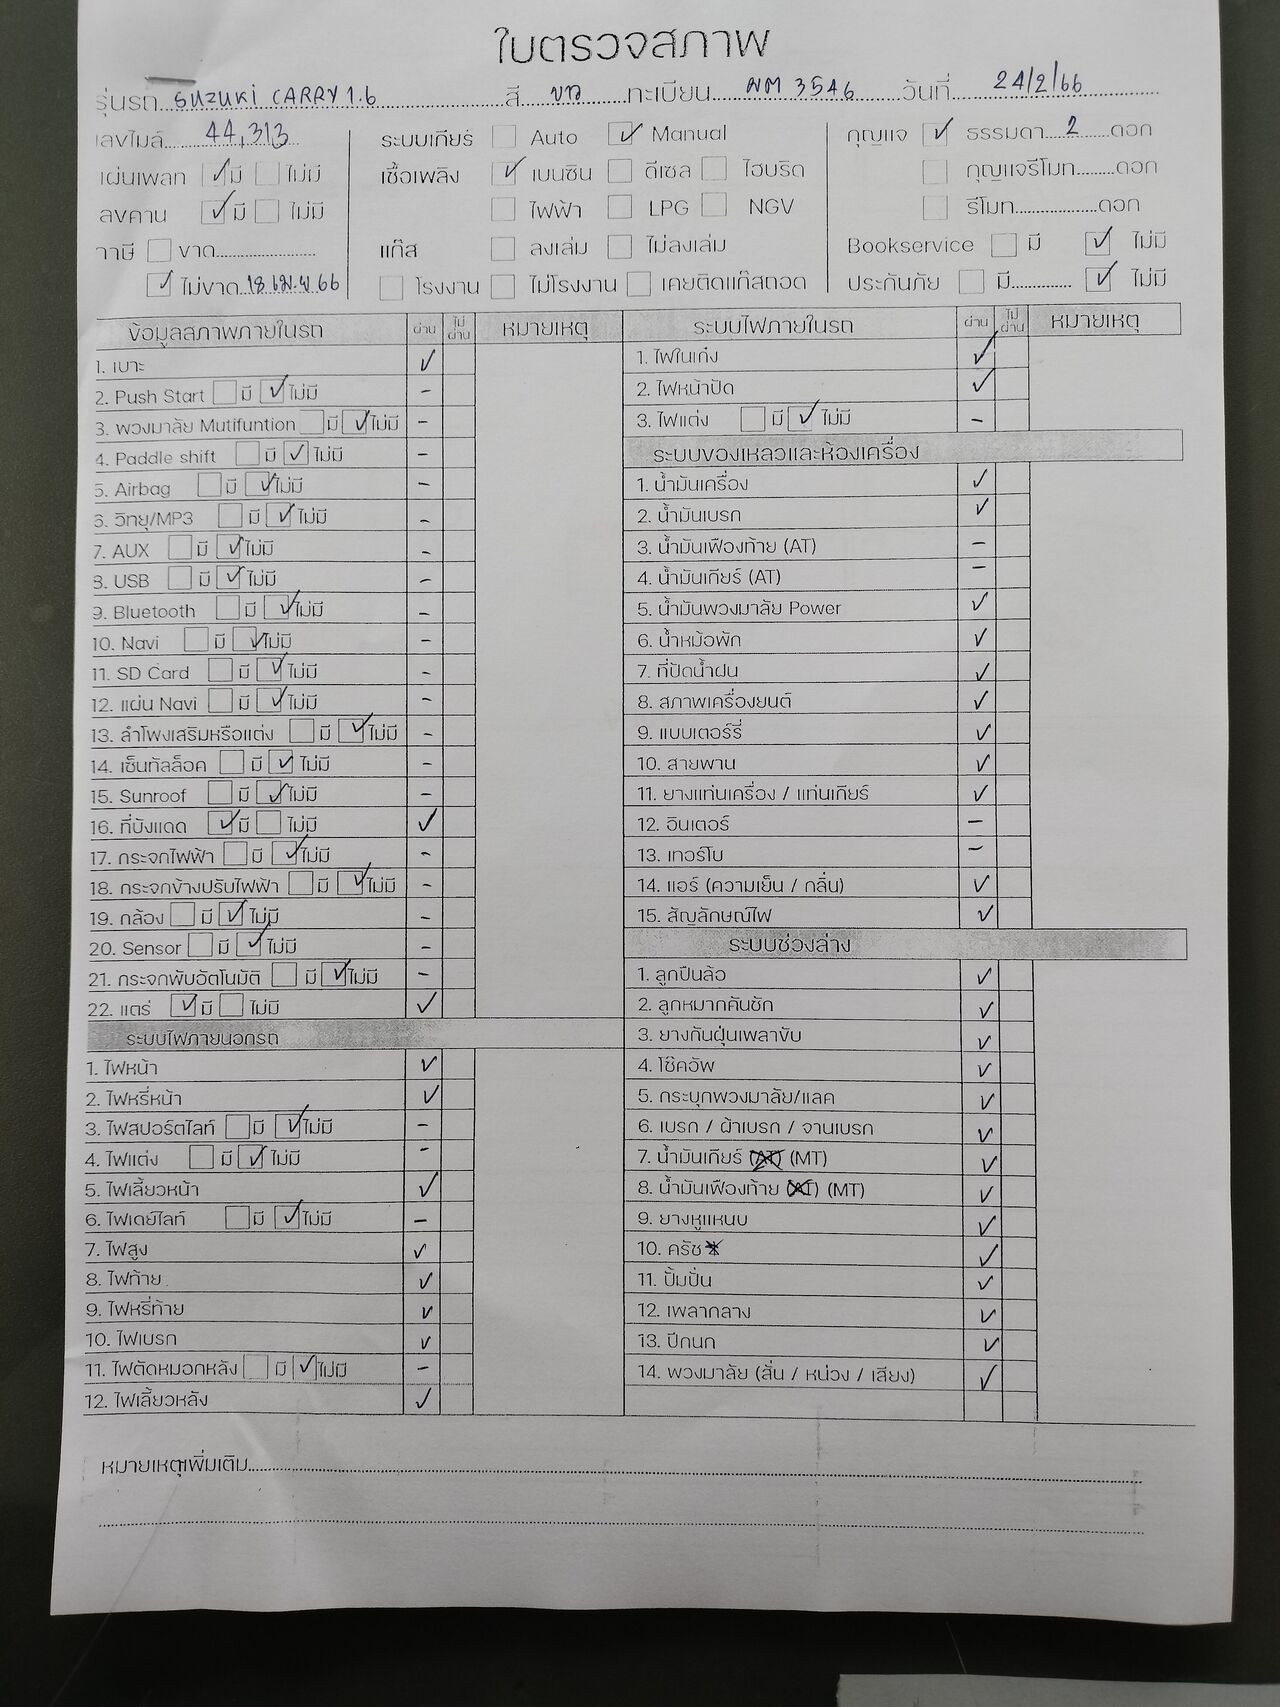 ใบตรวจสภาพ
รุ่นรถ SUZUKI CARRY 1.6 สี ขาว ทะเบียน ผต 3546 วันที่ 24/2/66
เลขไมล์ 44,313 ระบบเกียร์ Auto ✓ Manual กุญแจ ✓ ธรรมดา 2 ดอก
แผ่นเพลท ✓ มี ไม่มี เชื้อเพลิง ✓ เบนซิน ดีเซล ไฮบริด กุญแจรีโมท........ดอก
ลงคาน ✓ มี ไม่มี ไฟฟ้า LPG NGV รีโมท..................ดอก
ภาษี ขาด..................... แก๊ส ลงเล่ม ไม่ลงเล่ม Bookservice มี ✓ ไม่มี
✓ ไม่ขาด 18 เม.ษ 66 โรงงาน ไม่โรงงาน เคยติดแก๊สถอด ประกันภัย มี............. ✓ ไม่มี
ข้อมูลสภาพภายในรถ ผ่าน ไม่ผ่าน หมายเหตุ
1. เบาะ ✓
2. Push Start มี ✓ ไม่มี -
3. พวงมาลัย Mutifuntion มี ✓ ไม่มี -
4. Paddle shift มี ✓ ไม่มี -
5. Airbag มี ✓ ไม่มี -
6. วิทยุ/MP3 มี ✓ ไม่มี -
7. AUX มี ✓ ไม่มี -
8. USB มี ✓ ไม่มี -
9. Bluetooth มี ✓ ไม่มี -
10. Navi มี ✓ ไม่มี -
11. SD Card มี ✓ ไม่มี -
12. แผ่น Navi มี ✓ ไม่มี -
13. ลำโพงเสริมหรือแต่ง มี ✓ ไม่มี -
14. เซ็นทัลล็อค มี ✓ ไม่มี -
15. Sunroof มี ✓ ไม่มี -
16. ที่บังแดด ✓ มี ไม่มี ✓
17. กระจกไฟฟ้า มี ✓ ไม่มี -
18. กระจกข้างปรับไฟฟ้า มี ✓ ไม่มี -
19. กล้อง มี ✓ ไม่มี -
20. Sensor มี ✓ ไม่มี -
21. กระจกพับอัตโนมัติ มี ✓ ไม่มี -
22. แตร่ ✓ มี ไม่มี ✓
ระบบไฟภายนอกรถ
1. ไฟหน้า ✓
2. ไฟหรี่หน้า ✓
3. ไฟสปอร์ตไลท์ มี ✓ ไม่มี -
4. ไฟแต่ง มี ✓ ไม่มี -
5. ไฟเลี้ยวหน้า ✓
6. ไฟเดย์ไลท์ มี ✓ ไม่มี -
7. ไฟสูง ✓
8. ไฟท้าย ✓
9. ไฟหรี่ท้าย ✓
10. ไฟเบรก ✓
11. ไฟตัดหมอกหลัง มี ✓ ไม่มี -
12. ไฟเลี้ยวหลัง ✓
ระบบไฟภายในรถ ผ่าน ไม่ผ่าน หมายเหตุ
1. ไฟในเก๋ง ✓
2. ไฟหน้าปัด ✓
3. ไฟแต่ง มี ✓ ไม่มี -
ระบบของเหลวและห้องเครื่อง
1. น้ำมันเครื่อง ✓
2. น้ำมันเบรก ✓
3. น้ำมันเฟืองท้าย (AT) -
4. น้ำมันเกียร์ (AT) -
5. น้ำมันพวงมาลัย Power ✓
6. น้ำหม้อพัก ✓
7. ที่ปัดน้ำฝน ✓
8. สภาพเครื่องยนต์ ✓
9. แบบเตอร์รี่ ✓
10. สายพาน ✓
11. ยางแท่นเครื่อง / แท่นเกียร์ ✓
12. อินเตอร์ -
13. เทอร์โบ -
14. แอร์ (ความเย็น / กลิ่น) ✓
15. สัญลักษณ์ไฟ ✓
ระบบช่วงล่าง
1. ลูกปืนล้อ ✓
2. ลูกหมากคันชัก ✓
3. ยางกันฝุ่นเพลาขับ ✓
4. โช๊คอัพ ✓
5. กระบุกพวงมาลัย/แลค ✓
6. เบรก / ผ้าเบรก / จานเบรก ✓
7. น้ำมันเกียร์ (AT) (MT) ✓
8. น้ำมันเฟืองท้าย (AT) (MT) ✓
9. ยางหูแหนบ ✓
10. ครัช ✓
11. ปั้มปั่น ✓
12. เพลากลาง ✓
13. ปีกนก ✓
14. พวงมาลัย (สั่น / หน่วง / เสียง) ✓
หมายเหตุเพิ่มเติม